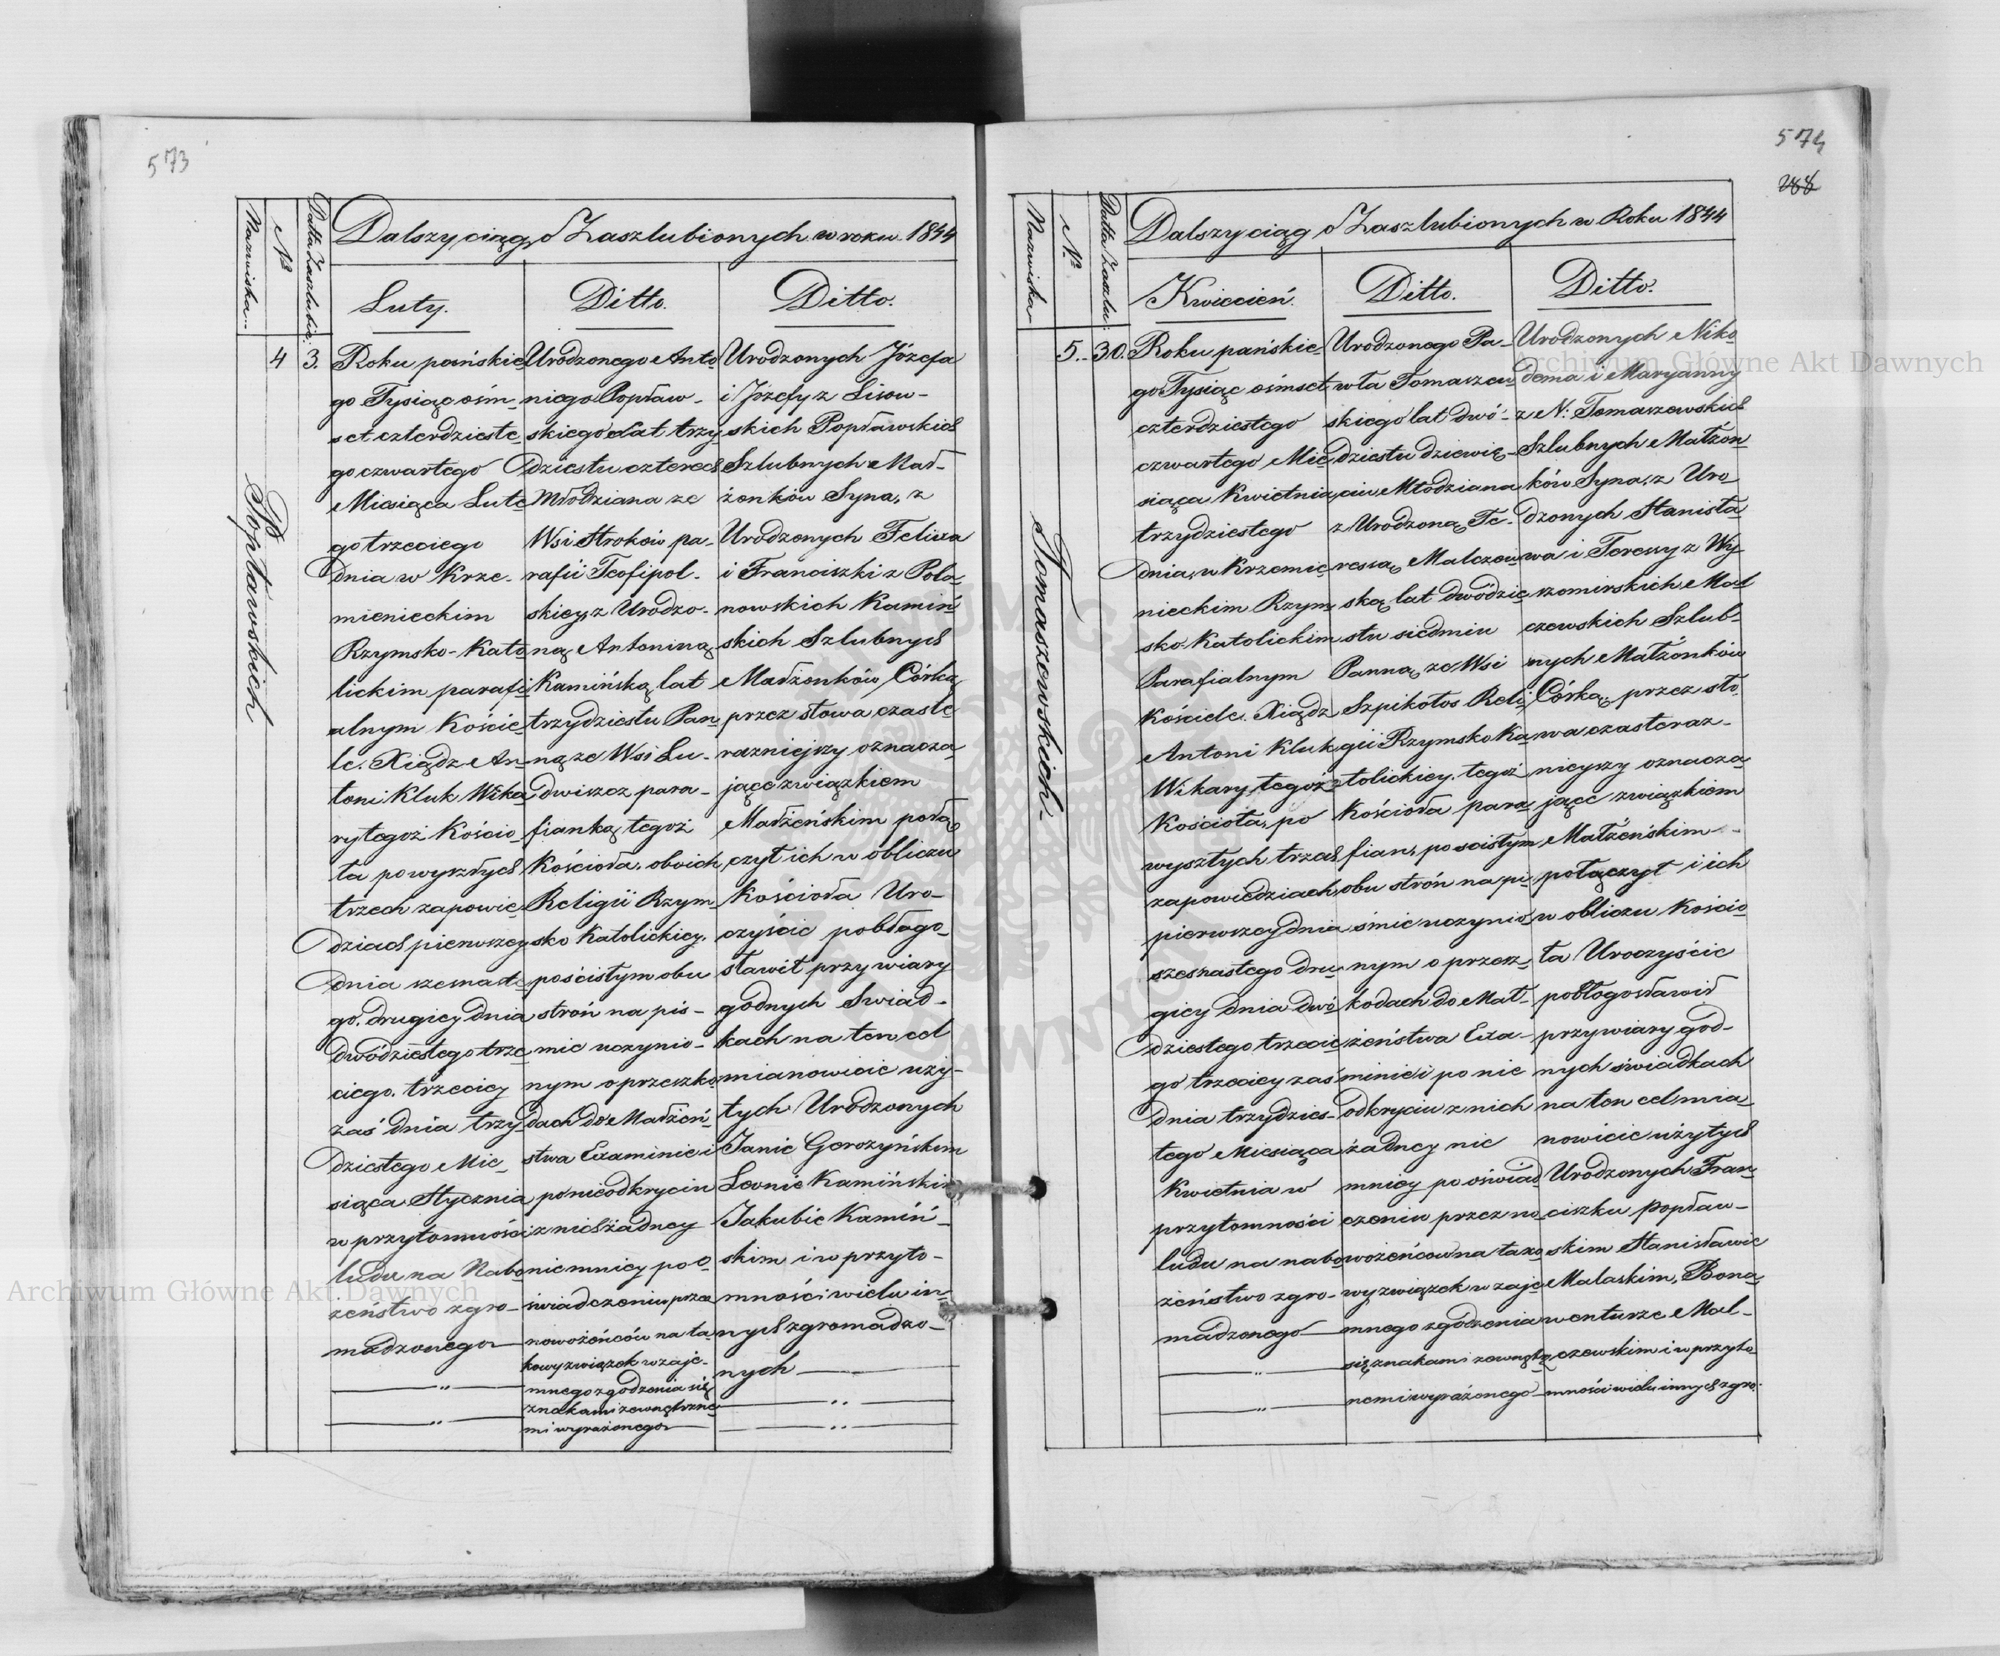 573
Dalszy ciąg o Zaszlubionych w roku 1844
Nazwiska
N°
Datta Zaszlubie:
Luty.
Ditto.
Ditto.
4
3.
Popławskich
Roku pańskie
go Tysiąc ośm
set czterdzieste
go czwartego
Miesiąca Lute
go trzeciego
dnia w Krze-
mienieckim
Rzymsko-Kato
lickim parafi
alnym Koście
le. Xiądz An
toni Kluk Wika
ry tegoż Kościo
ła powyszłych
trzech zapowie
dziach pierwszey
dnia szesnaste
go, drugiey dnia
dwódziestego trze
ciego, trzeciey
zaś dnia trzy
dziestego Mie-
siąca Stycznia
w przytomności
ludu na Nabo
żeństwo zgro-
madzonego
Urodzonego Anto
niego Popław-
skiego Lat trzy
dziestu czterech
Młodziana ze
Wsi Stroków pa-
rafii Teofipol-
skiey, z Urodzo-
ną Antoniną
Kamińską lat
trzydziestu Pan
ną ze Wsi Lu-
dwiszcz para-
fianką tegoż
Kościoła, oboich
Religii Rzym-
sko Katolickiey,
pościstym obu
strón na piś-
mie uczynio-
nym o przeszko
dach do Małżeń-
stwa Examinie i
po nieodkryciu
z nich żadney
niemniey po o-
świadczeniu przez
nowożeńców na ta-
kowy związek wzaje-
mnego zgodzenia się
znakami zewnętrzne
mi wyrażonego
Urodzonych Józefa
i Józefy z Lisow-
skich Popławskich
Szlubnych Mał-
żonków Syna, z
Urodzonych Felixa
i Franciszki z Pola-
nowskich Kamiń
skich Szlubnych
Małżonków Córką
przez słowa czaste
raznieyszy oznacza
jące związkiem
Małżeńskim połą
czył ich w obliczu
Kościoła Uro-
czyście pobłogo-
sławił przy wiary
godnych Swiad-
kach na ten cel
mianowicie uży-
tych Urodzonych
Janie Gorczyńskim
Leonie Kamińskim
Jakubie Kamiń-
skim i w przyto-
mności wielu in-
nych zgromadzo-
nych
574
288
Dalszy ciąg o Zaszlubionych w Roku 1844
Nazwiska
N°
Datta Zaszlu:
Kwiecień.
Ditto.
Ditto.
5.
30.
Tomaszewskich
Roku pańskie
go Tysiąc ośmset
czterdziestego
czwartego Mie
siąca Kwietnia
trzydziestego
dnia, w Krzemie
nieckim Rzym
sko-Katolickim
Parafialnym
Kościele. Xiądz
Antoni Kluk
Wikary tegoż
Kościoła, po
wyszłych trzech
zapowiedziach
pierwszey dnia
szesnastego dru
giey dnia dwó
dziestego trzecie
go trzeciey zaś
dnia trzydzies-
tego Miesiąca
Kwietnia w
przytomności
ludu na nabo
żeństwo zgro-
madzonego
Urodzonego Pa-
wła Tomaszew
skiego lat dwó-
dziestu dziewię-
ciu Młodziana
z Urodzoną Te-
ressą Malczew
ską lat dwódzie
stu siedmiu
Panną ze Wsi
Szpikołos Reli
gii Rzymsko Ka
tolickiey, tegoż
Kościoła para
fian, po scistym
obu strón na pi
śmie uczynio
nym o przesz-
kodach do Mał-
żeństwa Exa-
minie i po nie
odkryciu z nich
żadney nie
mniey po oświad
czeniu przez no-
wożeńcow na tako
wy związek wzaje
mnego zgodzenia
się znakami zewnętrz
nemi wyrażonego
Urodzonych Niko
dema i Maryanny
z N: Tomaszewskich
Szlubnych Małżon
ków Syna, z Uro
dzonych Stanisła
wa i Teressy z Wy
szomirskich Mal
czewskich Szlub-
nych Małżonków
Córką, przez sło
wa czasteraz-
nieyszy oznacza
jące związkiem
Małżeńskim
połączył i ich
w obliczu Kościo
ła Uroczyście
pobłogosławił
przy wiary god-
nych świadkach
na ten cel mia-
nowicie użytych
Urodzonych Fran
ciszku Popław-
skim Stanisławie
Malaskim, Bona
wenturze Mal-
czewskim i w przyto
mności wielu innych zgro:
Archiwum Główne Akt Dawnych
Archiwum Główne Akt Dawnych